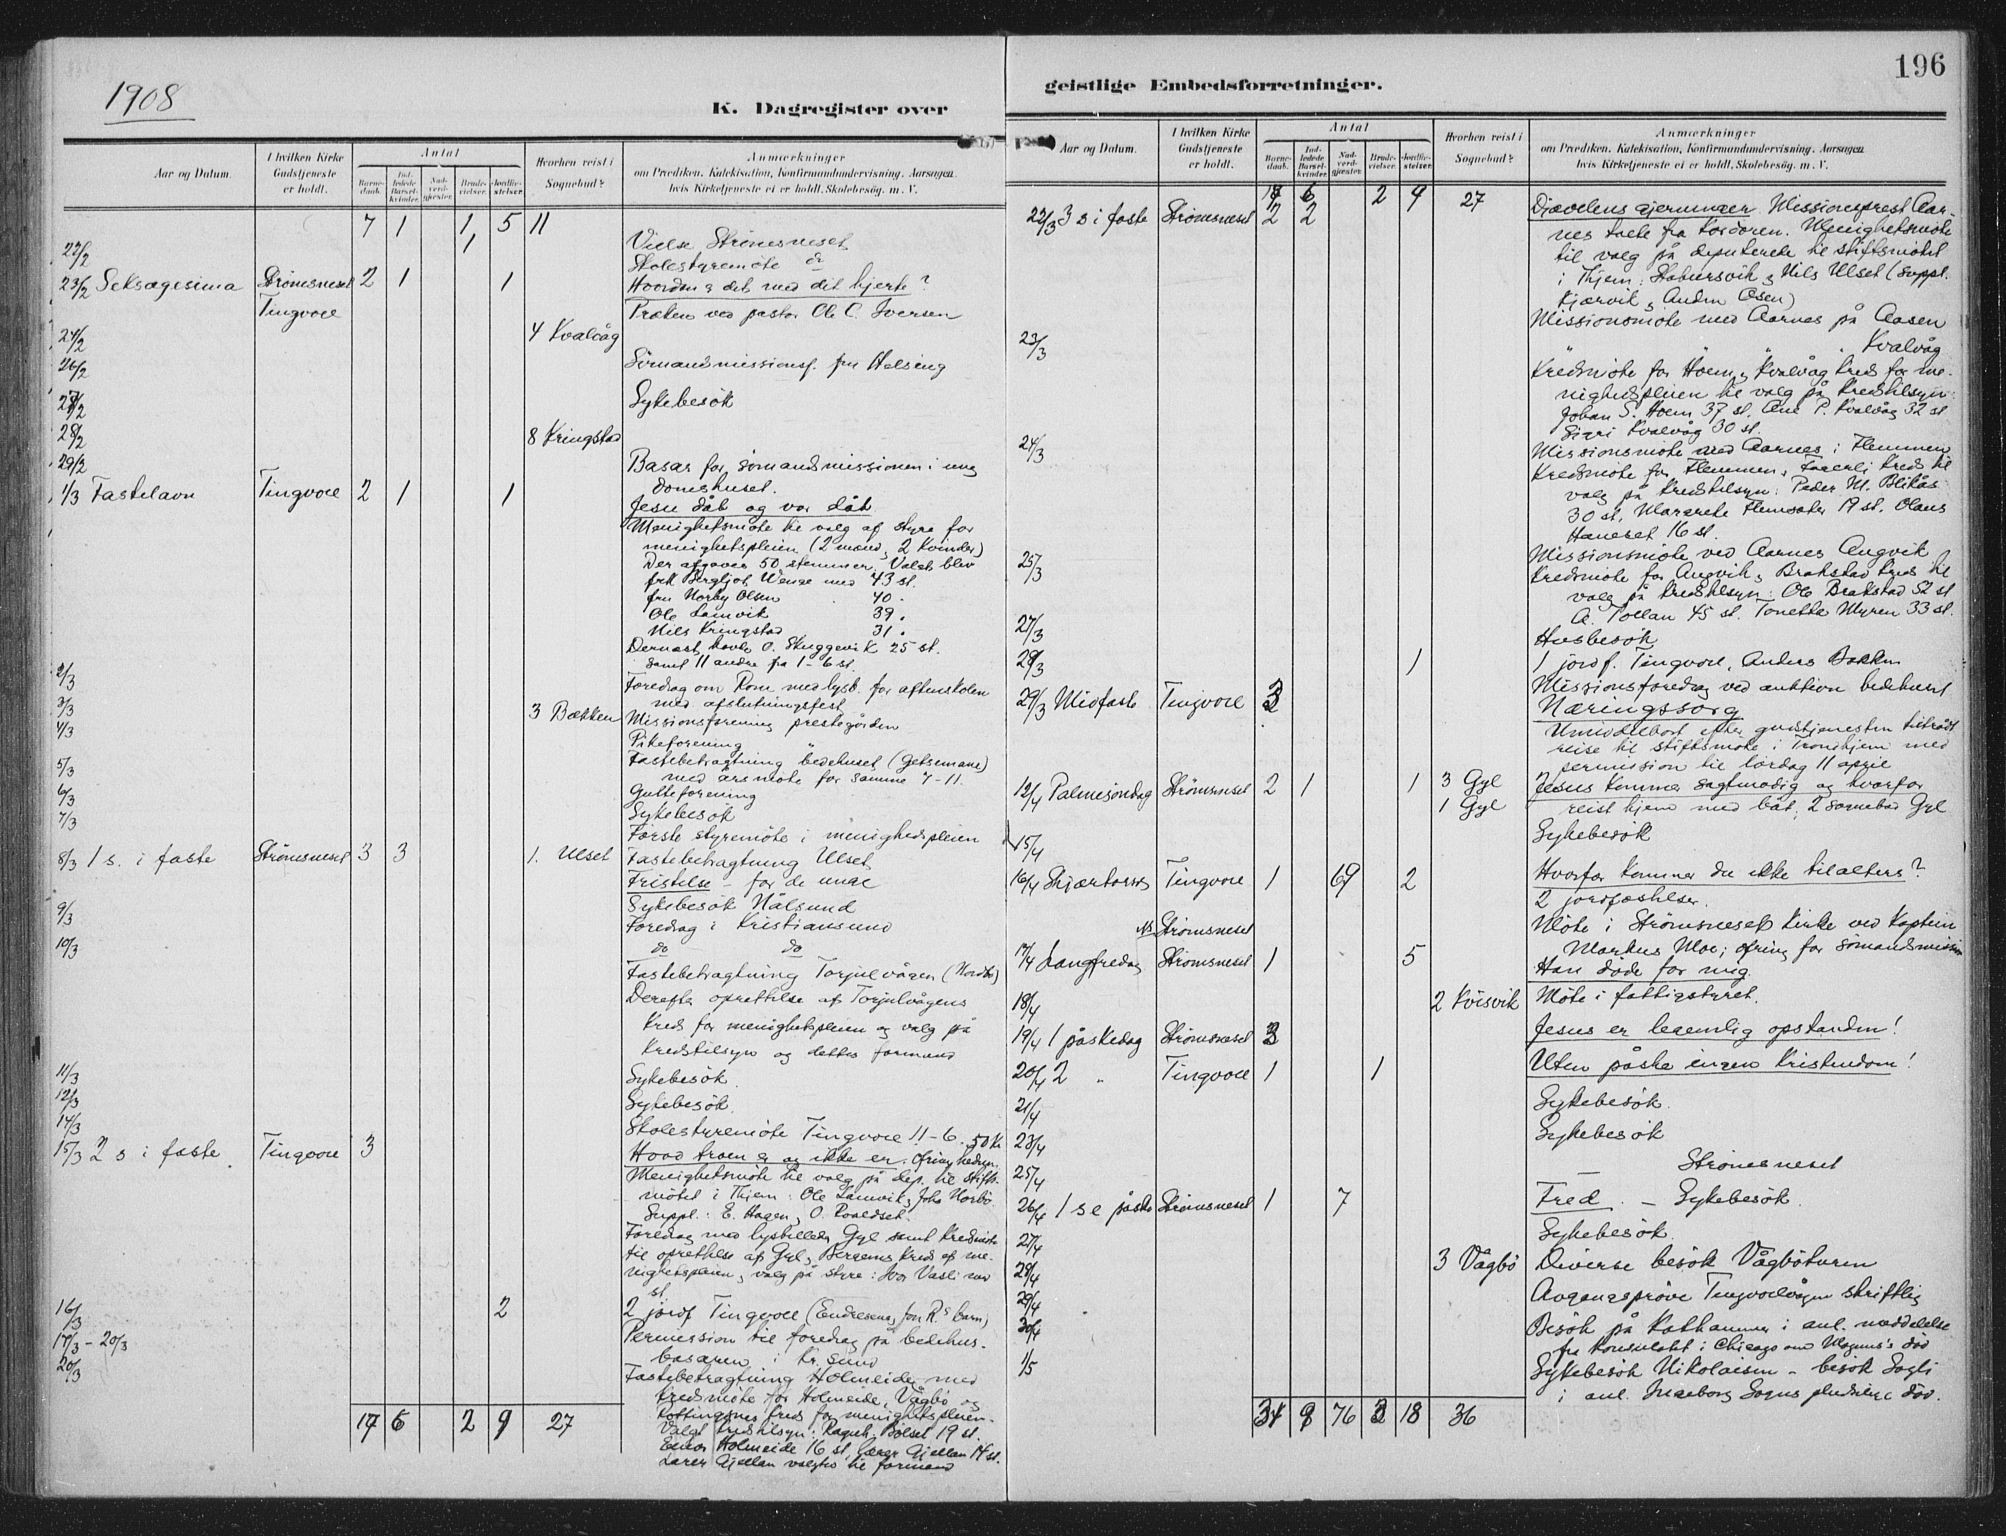 1908
K. Dagregister over
Aar og Datum.
I hvilken Kirke
Gudstjeneste
er holdt.
Antal
Barne-
daab.
Ind-
ledede
Barsel-
kvinder.
Nad-
verd-
gjæster.
Brude-
vielser.
Jordfæ-
stelser.
Hvorhen reist i
Sognebud?
Anmærkninger
om Prædiken, Katekisation, Konfirmandundervisning, Aarsagen
hvis Kirketjeneste ei er holdt, Skolebesøg. m. V.
7 1 1 5 11
22/2 1 Vielse Strömsneset
Skolestyremöte do
23/2 Seksagesima Strömsneset 2 1 1 Hvordan er det med dit hjerte?
Tingvoll Præken ved pastor Ole C. Iversen
24/2 4 Kvalvåg
26/2 Sömandsmissionsf. fru Helsing
27/2 Sykebesök
28/2 8 Kringstad
29/2 Basar for sömandsmissionen i ung
domshuset.
1/3 Fastelavn Tingvoll 2 1 1 Jesu dåb og vor dåb
Menighetsmöte til valg af styre for
menighetspleien (2 mænd, 2 kvinder)
Der afgaves 50 stemmer. Valgt blev
frk Bergljot Wenge med 43 st.
fru Norby Olsen 40 .
Ole Lamvik 39 .
Nils Kringstad 31 .
Dernæst havde O. Skuggevik 25 st.
samt 11 andre fra 1-6 st.
2/3 Foredrag om Rom med lysb. for aftenskolen
med afslutningsfest
3/3 3 Bækken Missionsforening prestegården
4/3 Pikeforening "
5/3 Fastebetragtning bedehuset (Getsemane)
med årsmöte for samme 7-11.
6/3 Gutteforening
7/3 Sykebesök
Förste styremöte i menighedspleien
8/3 1 s. i faste Strömsneset 3 3 1. Ulset Fastebetragtning Ulset
Fristelse - for de unge
9/3 Sykebesök Nålsund
Foredrag i Kristiansund
10/3 do do
Fastebetragtning Torjulvågen (Nordbö)
Derefter oprettelse af Torjulvågens
Kreds for menighetspleien og valg på
Kredstilsyn og dettes formand
11/3 Sykebesök.
12/3 Sykebesök.
14/3 Skolestyremöte Tingvoll 11-6.
15/3 2 s i faste Tingvoll 3 Hvad troen er og ikke er. Ofring hedn. 50 Kr
Menighetsmöte til valg på dep. til stifts-
mötet i Thjem: Ole Lamvik, Johs Norbö.
Suppl.: E. Hagen, O. Roaldset.
Foredrag med lysbilleder Gyl samt Kredsmöte
til oprettelse af Gyl, Bergems Kreds af me-
nighetspleien, valg på styre: Ivar Vasli med
st.
16/3 2 2 jordf Tingvoll (Endresens barn)
17/3 - 20/3 Permission til foredrag på bedehus-
basaren i Kr.sund
20/3 Fastebetragtning Holmeide med
Kredsmöte for Holmeide, Vågbö og
Rottingsnes Kreds for menighetspleien.
Valgt Kredstilsyn: Ragnh. Bölset 19 st.
Einar Holmeide 16 st, lærer Gjeldan 14 st.
Lærer Gjeldan valgtes til formand
17 6 2 9 27
196
geistlige Embedsforretninger.
Aar og Datum.
I hvilken Kirke
Gudstjeneste
er holdt.
Antal
Barne-
daab.
Ind-
ledede
Barsel-
kvinder.
Nad-
verd-
gjæster.
Brude-
vielser.
Jordfæ-
stelser.
Hvorhen reist i
Sognebud?
Anmærkninger
om Prædiken, Katekisation, Konfirmandundervisning, Aarsagen
hvis Kirketjeneste ei er holdt, Skolebesög. m. V.
17 6 2 9 27
22/3 3 s i faste Strömsneset 2 2 Djævelens gjerninger Missionsprest Aar-
nes talte fra kordören. Menighetsmöte
til valg på deputerede til stiftsmötet
i Thjem: Stabursvik, Nils Ulset (Suppl.
Kjærvik, Anders Åsen)
Missionsmöte med Aarnes på Aasen
23/3 " " " Kvalvåg
Kredsmöte for Hoem, Kvalvåg Kreds for me-
nighedspleien til valg på Kredstilsyn:
Johan S. Hoem 37 st. Ane P. Kvalvåg 32 st
Sigri Kvalvåg 30 st.
24/3 Missionsmöte med Aarnes i Flemmen
Kredsmöte for Flemmen, Fagerli Kreds til
valg på Kredstilsyn: Peder M. Blikås
30 st, Margrete Flemsæter 19 st. Olaus
Haneset 16 st.
25/3 Missionsmöte ved Aarnes Angvik
Kredsmöte for Angvik, Brakstad Kreds til
valg på Kredstilsyn: Ole Brakstad 52 st
A. Tollan 45 st. Tonette Myren 33 st.
27/3 Husbesök
28/3 1 1 jordf. Tingvoll, Anders Bakken
Missionsforedrag ved auktion bedehuset
29/3 Midfaste Tingvoll 3 Næringssorg
Umiddelbart efter gudstjenesten tiltrådt
reise til stiftsmöte i Trondhjem med
permission til lördag 11 april
12/4 Palmesöndag Strömsneset 2 1 1 3 Gyl Jesus kommer sagtmodig og hvorfor
1 Gyl reist hjem med båt, 2 sognebud Gyl
15/4 Sykebesök
16/4 Skjærtorsd Tingvoll 1 69 2 Hvorfor kommer du ikke til alters?
2 jordfæstelser.
NB Strömsneset Möte i Strömsneset Kirke ved Kaptein
Markus Moe; ofring for sömandsmission
17/4 Langfredag Strömsneset 1 5 Han döde for mig.
18/4 2 Kvisvik Möte i fattigstyret.
19/4 1 påskedag Strömsneset 3 Jesus er legemlig opstanden!
20/4 2 " Tingvoll 1 1 Uten påske ingen Kristendom!
21/4 Sykebesök.
23/4 Sykebesök
25/4 — Strömsneset
26/4 1 s e påske Strömsneset 1 7 Fred. — Sykebesök.
27/4 Sykebesök.
28/4 3 Vågbö Diverse besök Vågböturen
29/4 Avgangspröve Tingvollvågen skriftlig
30/4 Besök på Kathammer i anl. meddelelse
fra Konsulatet i Chicago om Magnus's död
1/5 Sykebesök Nikolaisen - besök Sogli
i anl. Ingeborg Sogns pludselige död.
34 9 76 3 18 36